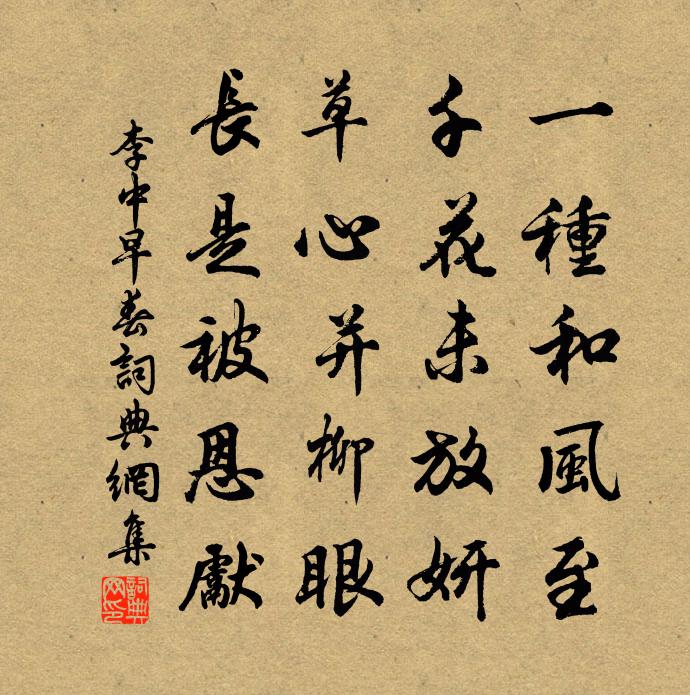 一種和風至
千花未放妍
草心并柳眼
長是被恩獻
李中早春詞典網集
詞典网印